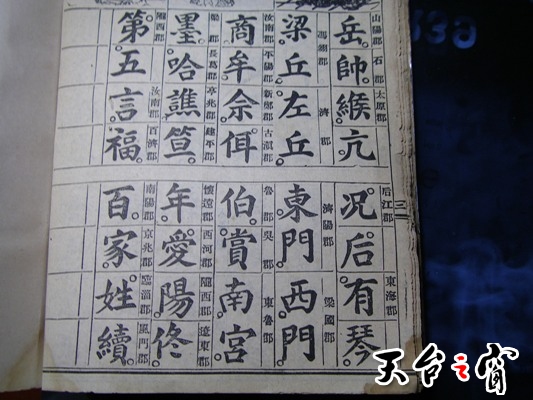 山陽郡 石郡 太原郡
岳帥緱亢
后江郡 東海郡
况后有琴
三
馮翊郡 濟郡
梁丘左丘
濟陽郡 梁國郡
東門西門
汝南郡 平陽郡 新鄭郡 古滇郡
商牟佘佴
魯郡 吳郡 東魯郡
伯賞南宮
梁郡 長葛郡 京兆郡 建平郡
墨哈譙笪
懷遠郡 西河郡 隴西郡 遼東郡
年愛陽佟
隴西郡 汝南郡 百濟郡
第五言福
南陽郡 京兆郡 臨淄郡 雁門郡
百家姓續
天台之窗